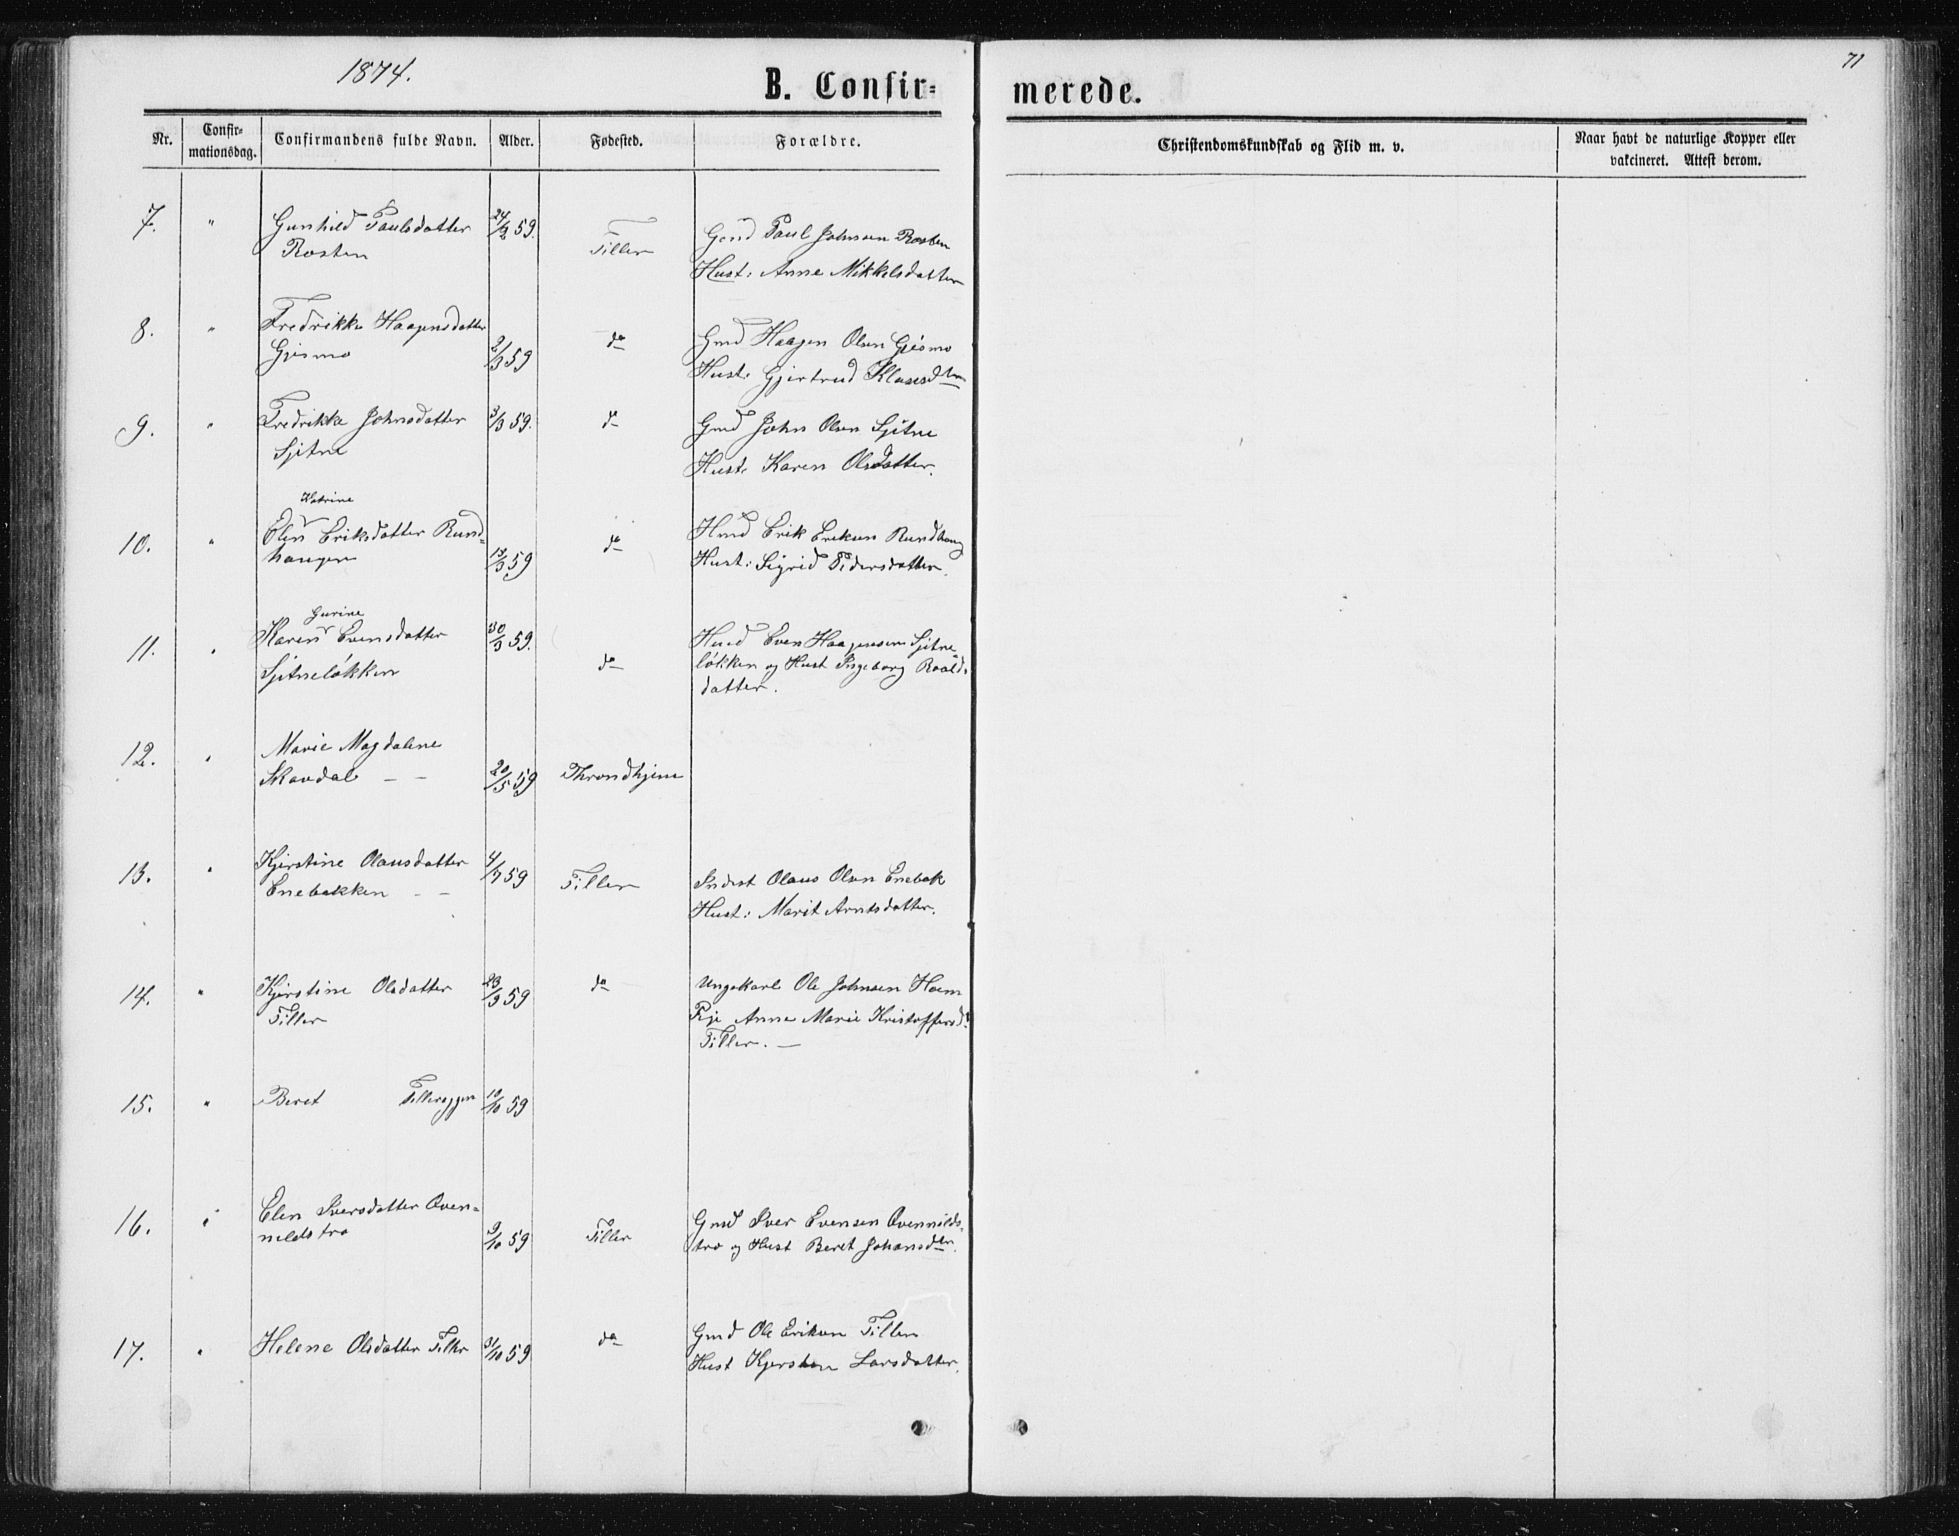 1874.
71
B. Confir=
merede.
Nr.
Confir-
mationsdag.
Confirmandens fulde Navn.
Alder.
Fødested.
Forældre.
Christendomskundskab og Flid m. v.
Naar havt de naturlige Kopper eller
vakcineret. Attest derom.
7. " Gunhild Paulsdatter 24/2 59. Tiller Gmd Paul Johnsen Rosten
Rosten Hust: Anne Mikkelsdatter
8. " Fredrikke Haagensdatter do Gmd Haagen Olsen Gjesmo
Gjesmo 2/3 59 Hust: Gjertrud Klausdtr
9. " Fredrikke Johnsdatter 3/3 59. do Gmd John Olsen Sjitne
Sjitne Hust: Karen Olsdatter.
Katrine
10. " Olin Eriksdatter Rund- do Hmd Erik Eriksen Rundhaug
haugen 13/3 59 Hust: Sigrid Pedersdatter.
Gurine
11. " Karen Evensdatter 30/3 59. do Hmd Even Haagensen Sjitne-
Sjitneløkken løkken og Hust Ingeborg Roalds
datter.
12. " Marie Magdalene
Skavdal - - 20/5 59 Throndhjem
13. " Kjerstine Olausdatter 4/7 59 Tiller Inderst Olaus Olsen Enebak
Enebakken - - Hust: Marit Arntsdatter.
14. " Kjerstine Olsdatter 23/9 59 do Ungekarl Ole Johnsen Hoem
Tiller Pige Anne Marie Kristoffersdt
Tiller. —
15. " Beret Tillereggen 10/10 59
16. " Elen Iversdatter Oven- Tiller Gmd Iver Evensen Ovennilds-
nildstro 9/10 59 tro og Hust Beret Johansdtr.
17. " Helene Olsdatter Tiller 31/10 59 do Gmd Ole Eriksen Tiller
Hust Kjersten Larsdatter.